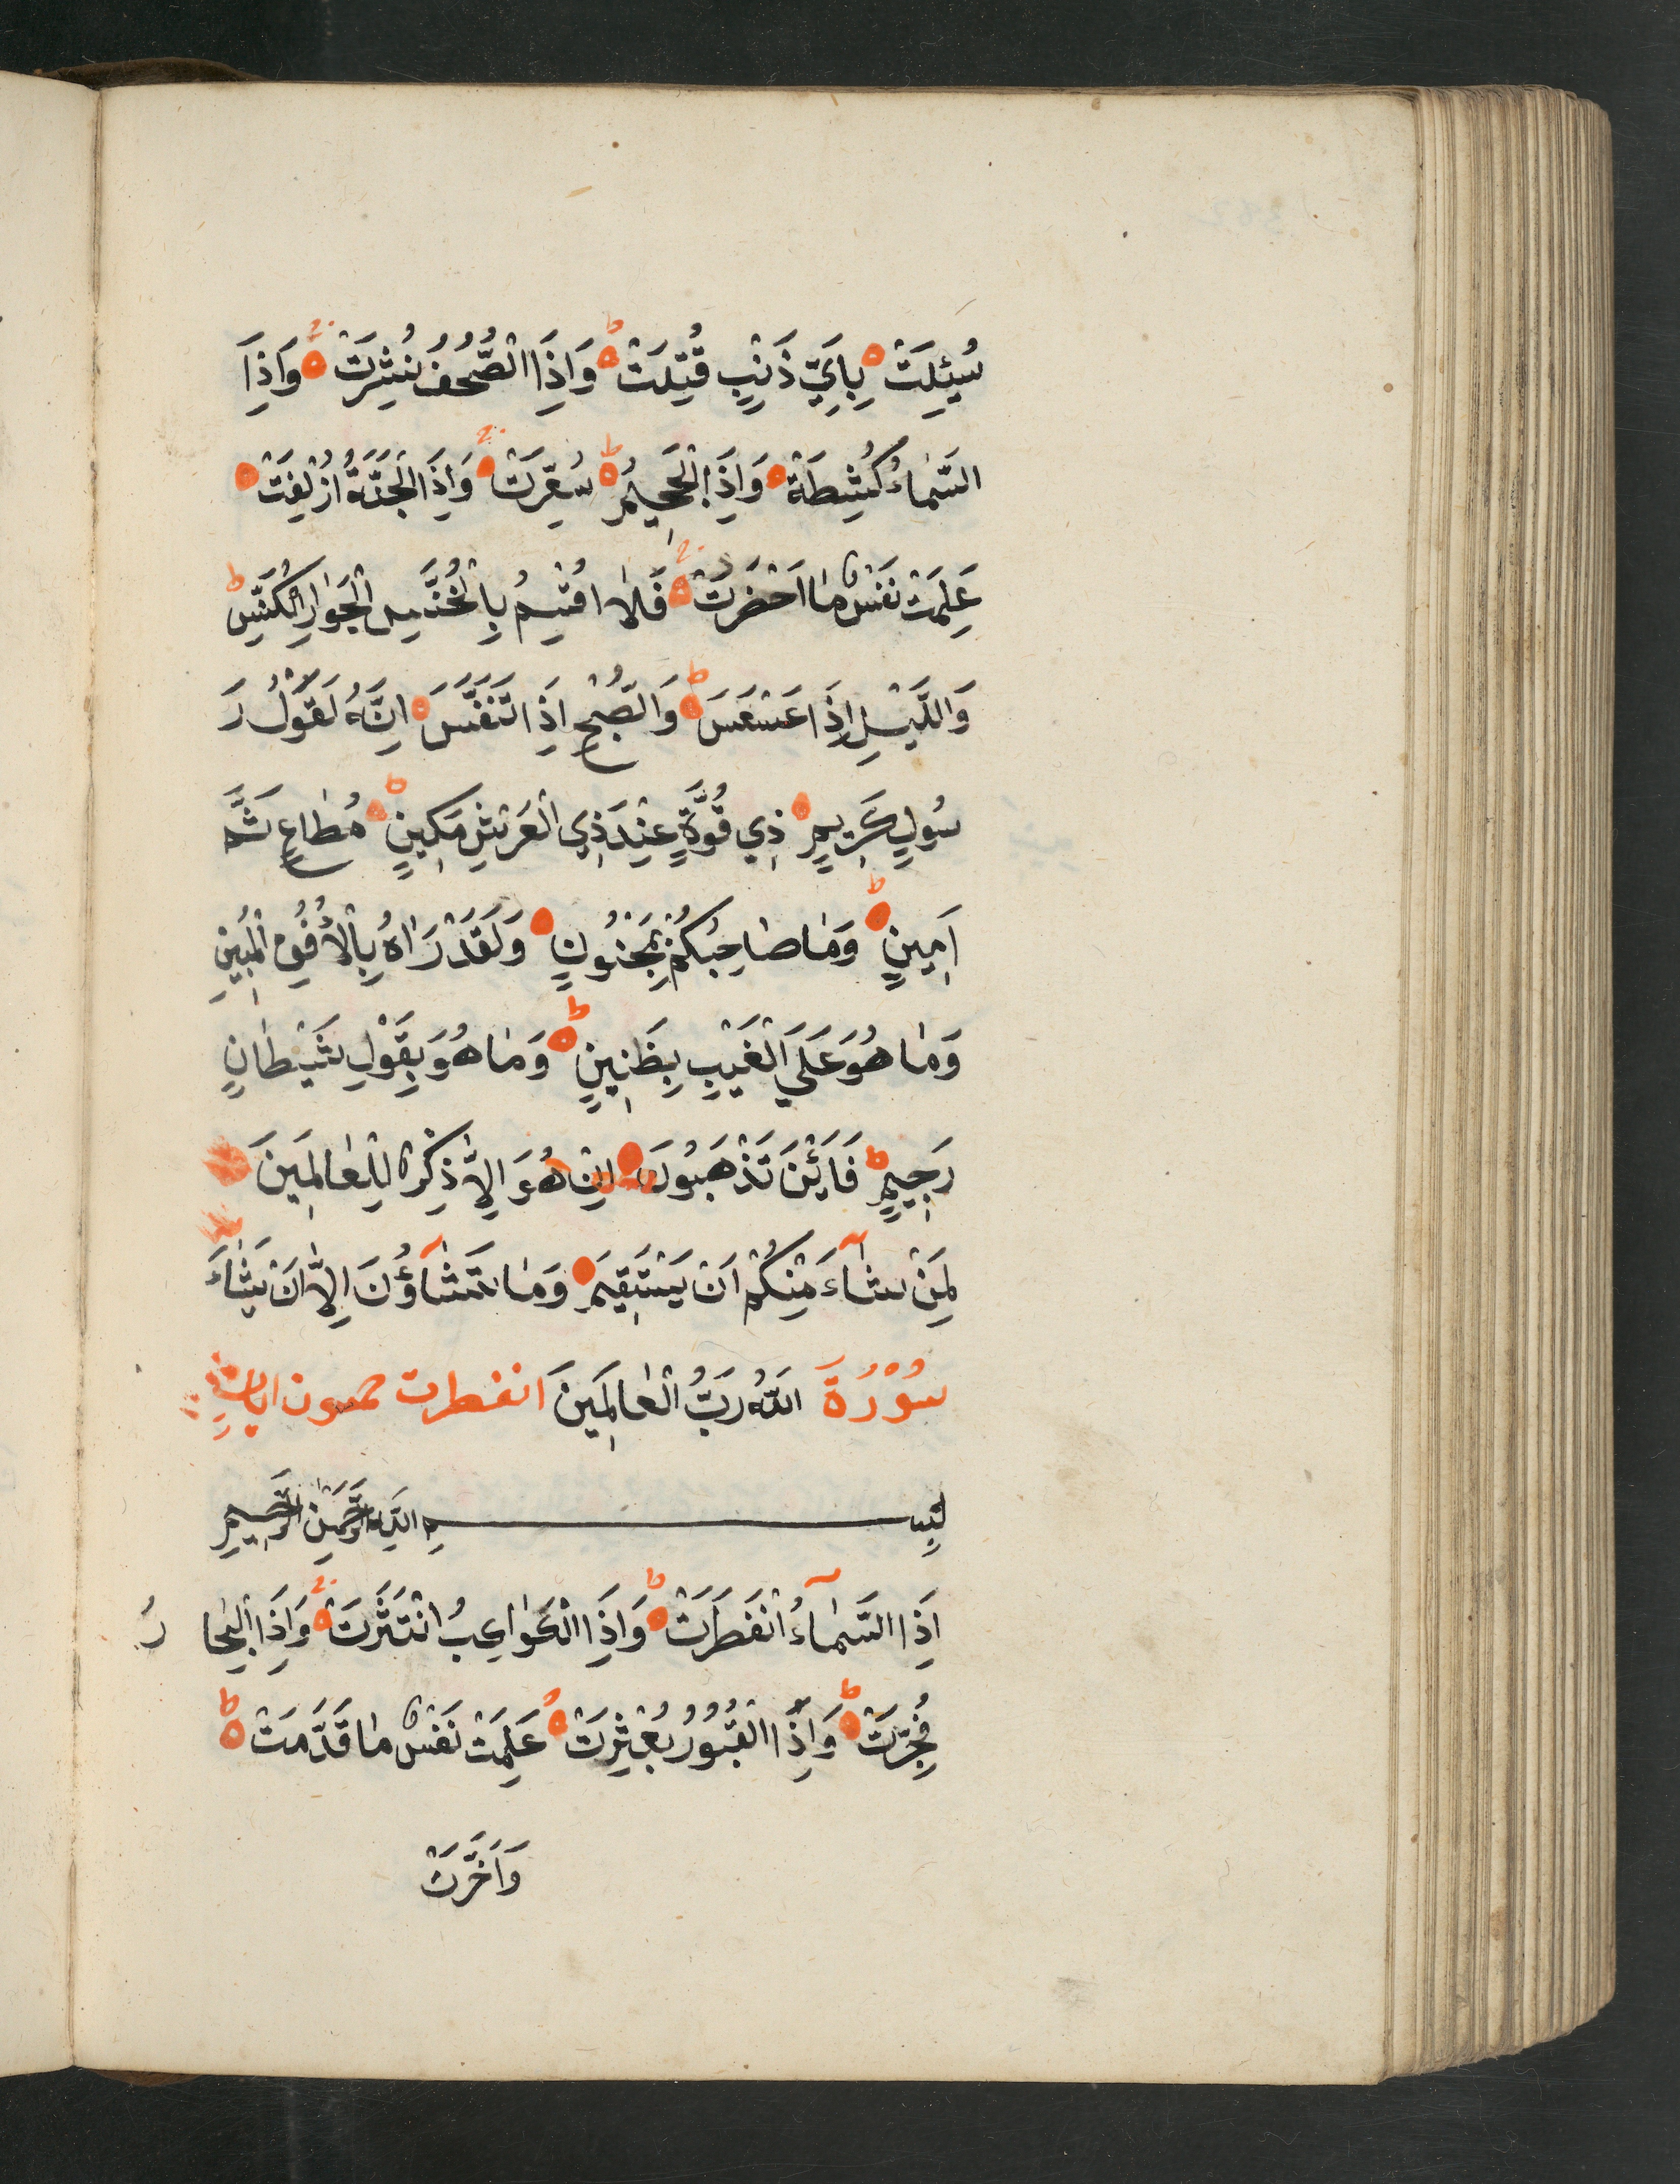 سُئِلَتْ بِاَيِّ ذَنْبٍ قُتِلَتْ وَاِذَا الصُّحُفُ نُشِرَتْ وَاِذَا
السَّمٰاءُ كُشِطَةْ وَاِذَا الْجَحِيمُ سُعِّرَتْ وَاِذَا الْجَنَّةُ اُزْلِفَتْ
عَلِمَتْ نَفْسٌ مٰا اَحْضَرَتْ فَلٰا اُقْسِمُ بِالْخُنَّسِ الْجَوٰارِ الْكُنَّسِ
وَاللَّيْلِ اِذَا عَسْعَسَ وَالصُّبْحِ اِذَا تَنَفَّسَ اِنَّهُ لَقَوْلُ رَ
سُولٍ كَرِيمٍ ذِي قُوَّةٍ عِنْدَ ذِي الْعَرْشِ مَكِينٍ مُطٰاعٍ ثَمَّ
اَمِينٍ وَمٰا صٰاحِبُكُمْ بِمَجْنُونٍ وَلَقَدْ رَاٰهُ بِالْاُفُقِ الْمُبِينِ
وَمٰا هُوَ عَلَي الْغَيْبِ بِظَنِينٍ وَمٰا هُوَ بِقَوْلِ شَيْطٰانٍ
رَجِيمٍ فَاَيْنَ تَذْهَبُونَ اِنْ هُوَ اِلاّٰ ذِكْرٌ لِلْعٰالَمِينَ
لِمَنْ شٰآءَ مِنْكُمْ اَنْ يَسْتَقِيمَ وَمٰا تَشٰآؤُنَ اِلاّٰ اَنْ يَشٰاءَ
سُوْرُةَ اللّٰهُ رَبُّ الْعٰالَمِينَ انفطرت ايات
بِسْمِ اللّٰهِ الرَّحْمٰنِ الرَّحِيمِ
اِذَا السَّمٰآءُ انْفَطَرَتْ وَاِذَا الْكَوٰاعِبُ انْتَثَرَتْ وَاِذَا الْبِحٰا رُ
فُجِّرَتْ وَاِذَا الْقُبُوُرُ بُعْثِرَتْ عَلِمَتْ نَفْسٌ مٰا قَدَّمَتْ
وَاَخَّرَتْ